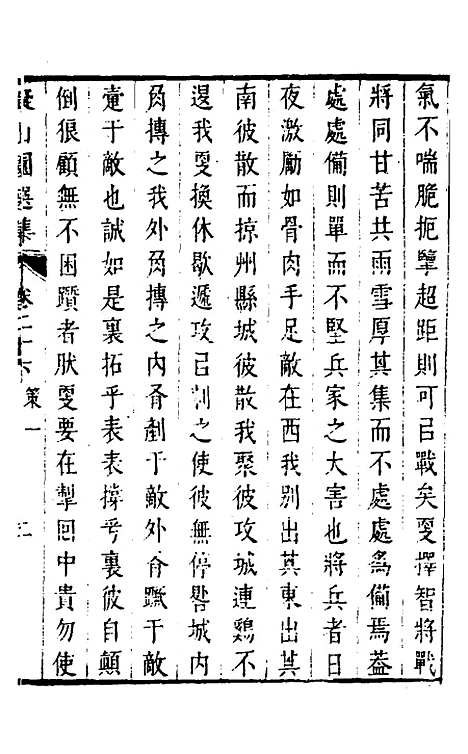 氣不喘脆扼擥超距則可㠯戰矣㪅擇智將戰
將同甘苦共雨雪厚其集而不處處爲備焉葢
處處備則單而不堅兵家之大害也將兵者日
夜激勵如骨肉手足敵在西我別出其東出其
南彼散而掠州縣城彼散我聚彼攻城連鷄不
退我㪅換休歇遞攻㠯制之使彼無停晷城内
肏摶之我外肏摶之内肏剷于敵外肏蹶于敵
䡴于敵也誠如是裏拓乎表表撐乎裏彼自顛
倒狠顧無不困躓者肰㪅要在掣囘中貴勿使
山園選集
卷二十六
策一
二